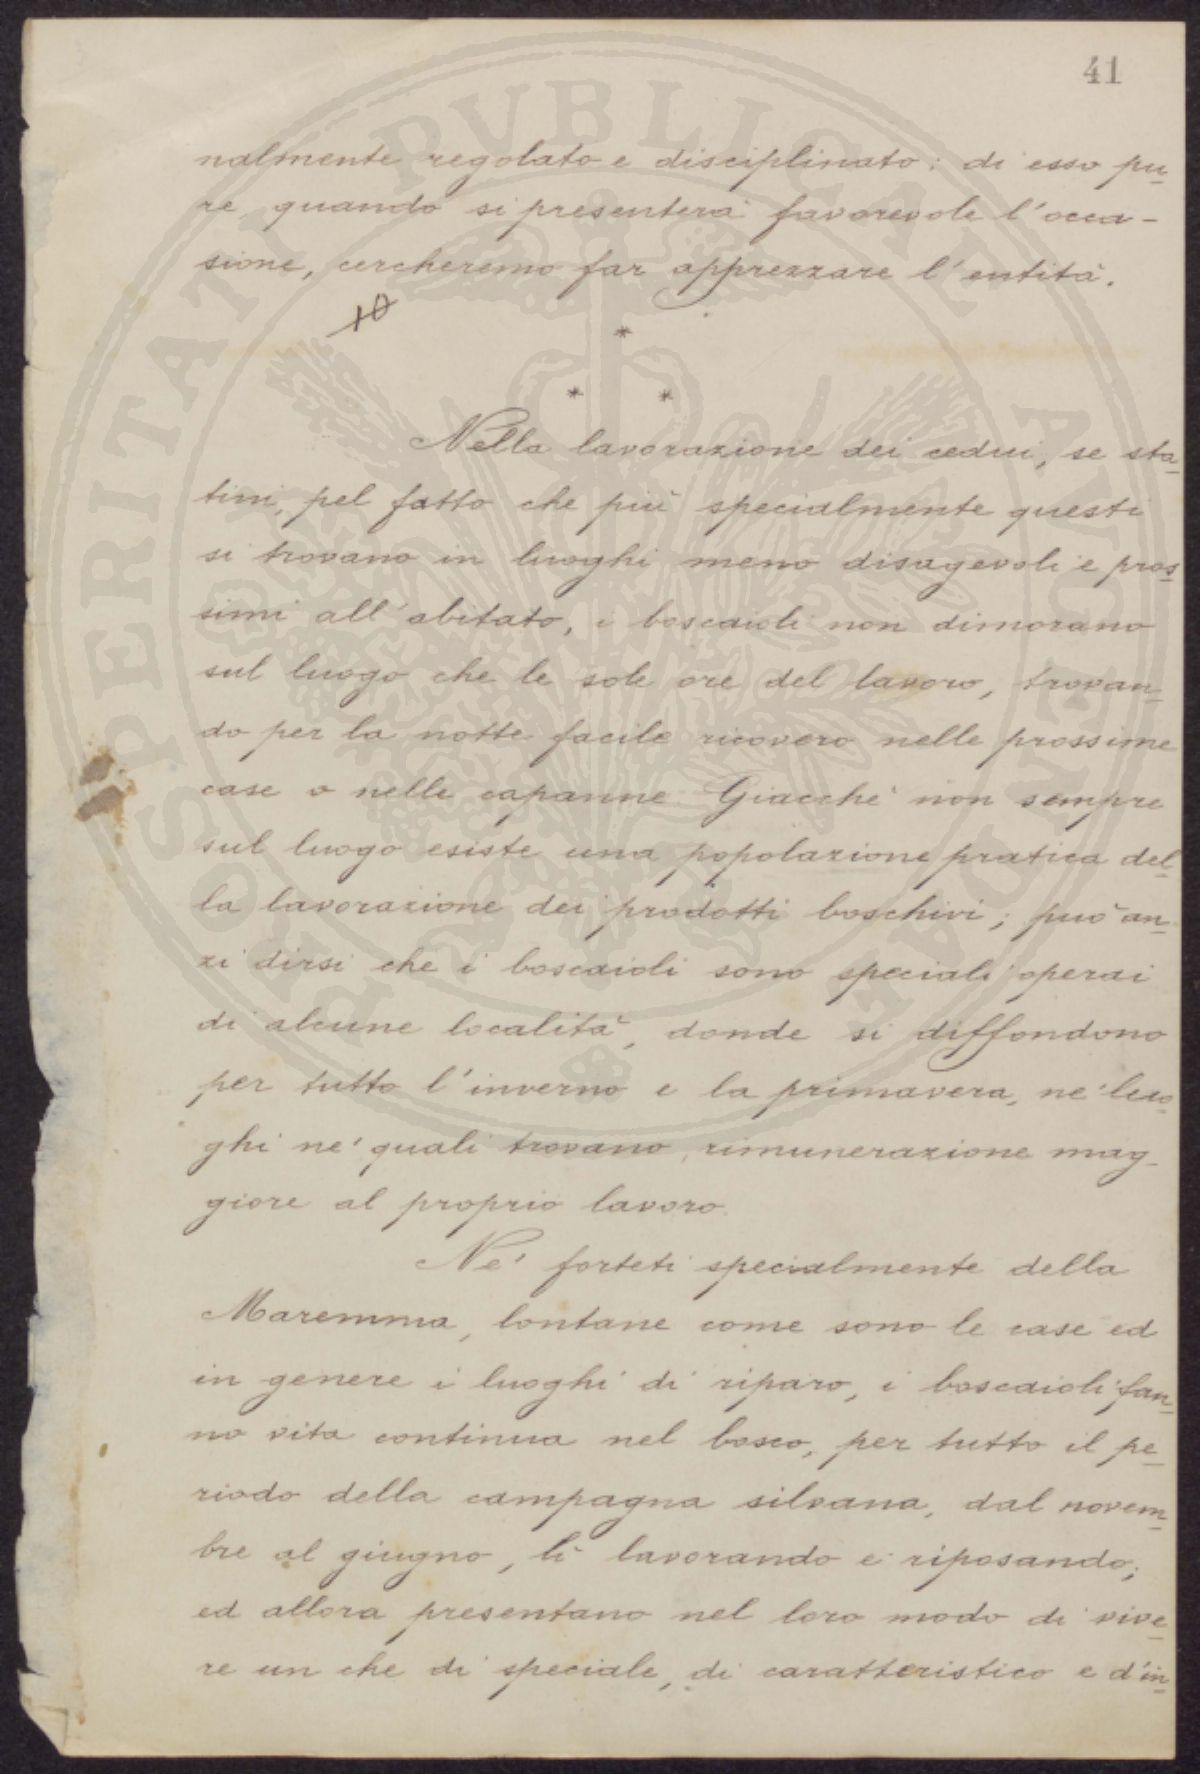 41
nalmente regolato e disciplinato: di esso pu-
re, quando si presenterà favorevole l'occa-
sione, cercheremo far apprezzare l'entità.
10
*
* *
Nella lavorazione dei cedui, se sta-
timi, pel fatto che più specialmente questi
si trovano in luoghi meno disagevoli e pros-
simi all'abitato, i boscaioli non dimorano
sul luogo che le sole ore del lavoro, trovan-
do per la notte facile ricovero nelle prossime
case o nelle capanne. Giacchè non sempre
sul luogo esiste una popolazione pratica del-
la lavorazione dei prodotti boschivi; può an-
zi dirsi che i boscaioli sono speciali operai
di alcune località, donde si diffondono
per tutto l'inverno e la primavera, ne' luo-
ghi ne' quali trovano rimunerazione mag-
giore al proprio lavoro.
Ne' forteti specialmente della
Maremma, lontane come sono le case ed
in genere i luoghi di riparo, i boscaioli fan-
no vita continua nel bosco, per tutto il pe-
riodo della campagna silvana, dal novem-
bre al giugno, lì lavorando e riposando;
ed allora presentano nel loro modo di vive-
re un che di speciale, di caratteristico e d'in-
PVBLICAE AVGENDAE PROSPERITATI